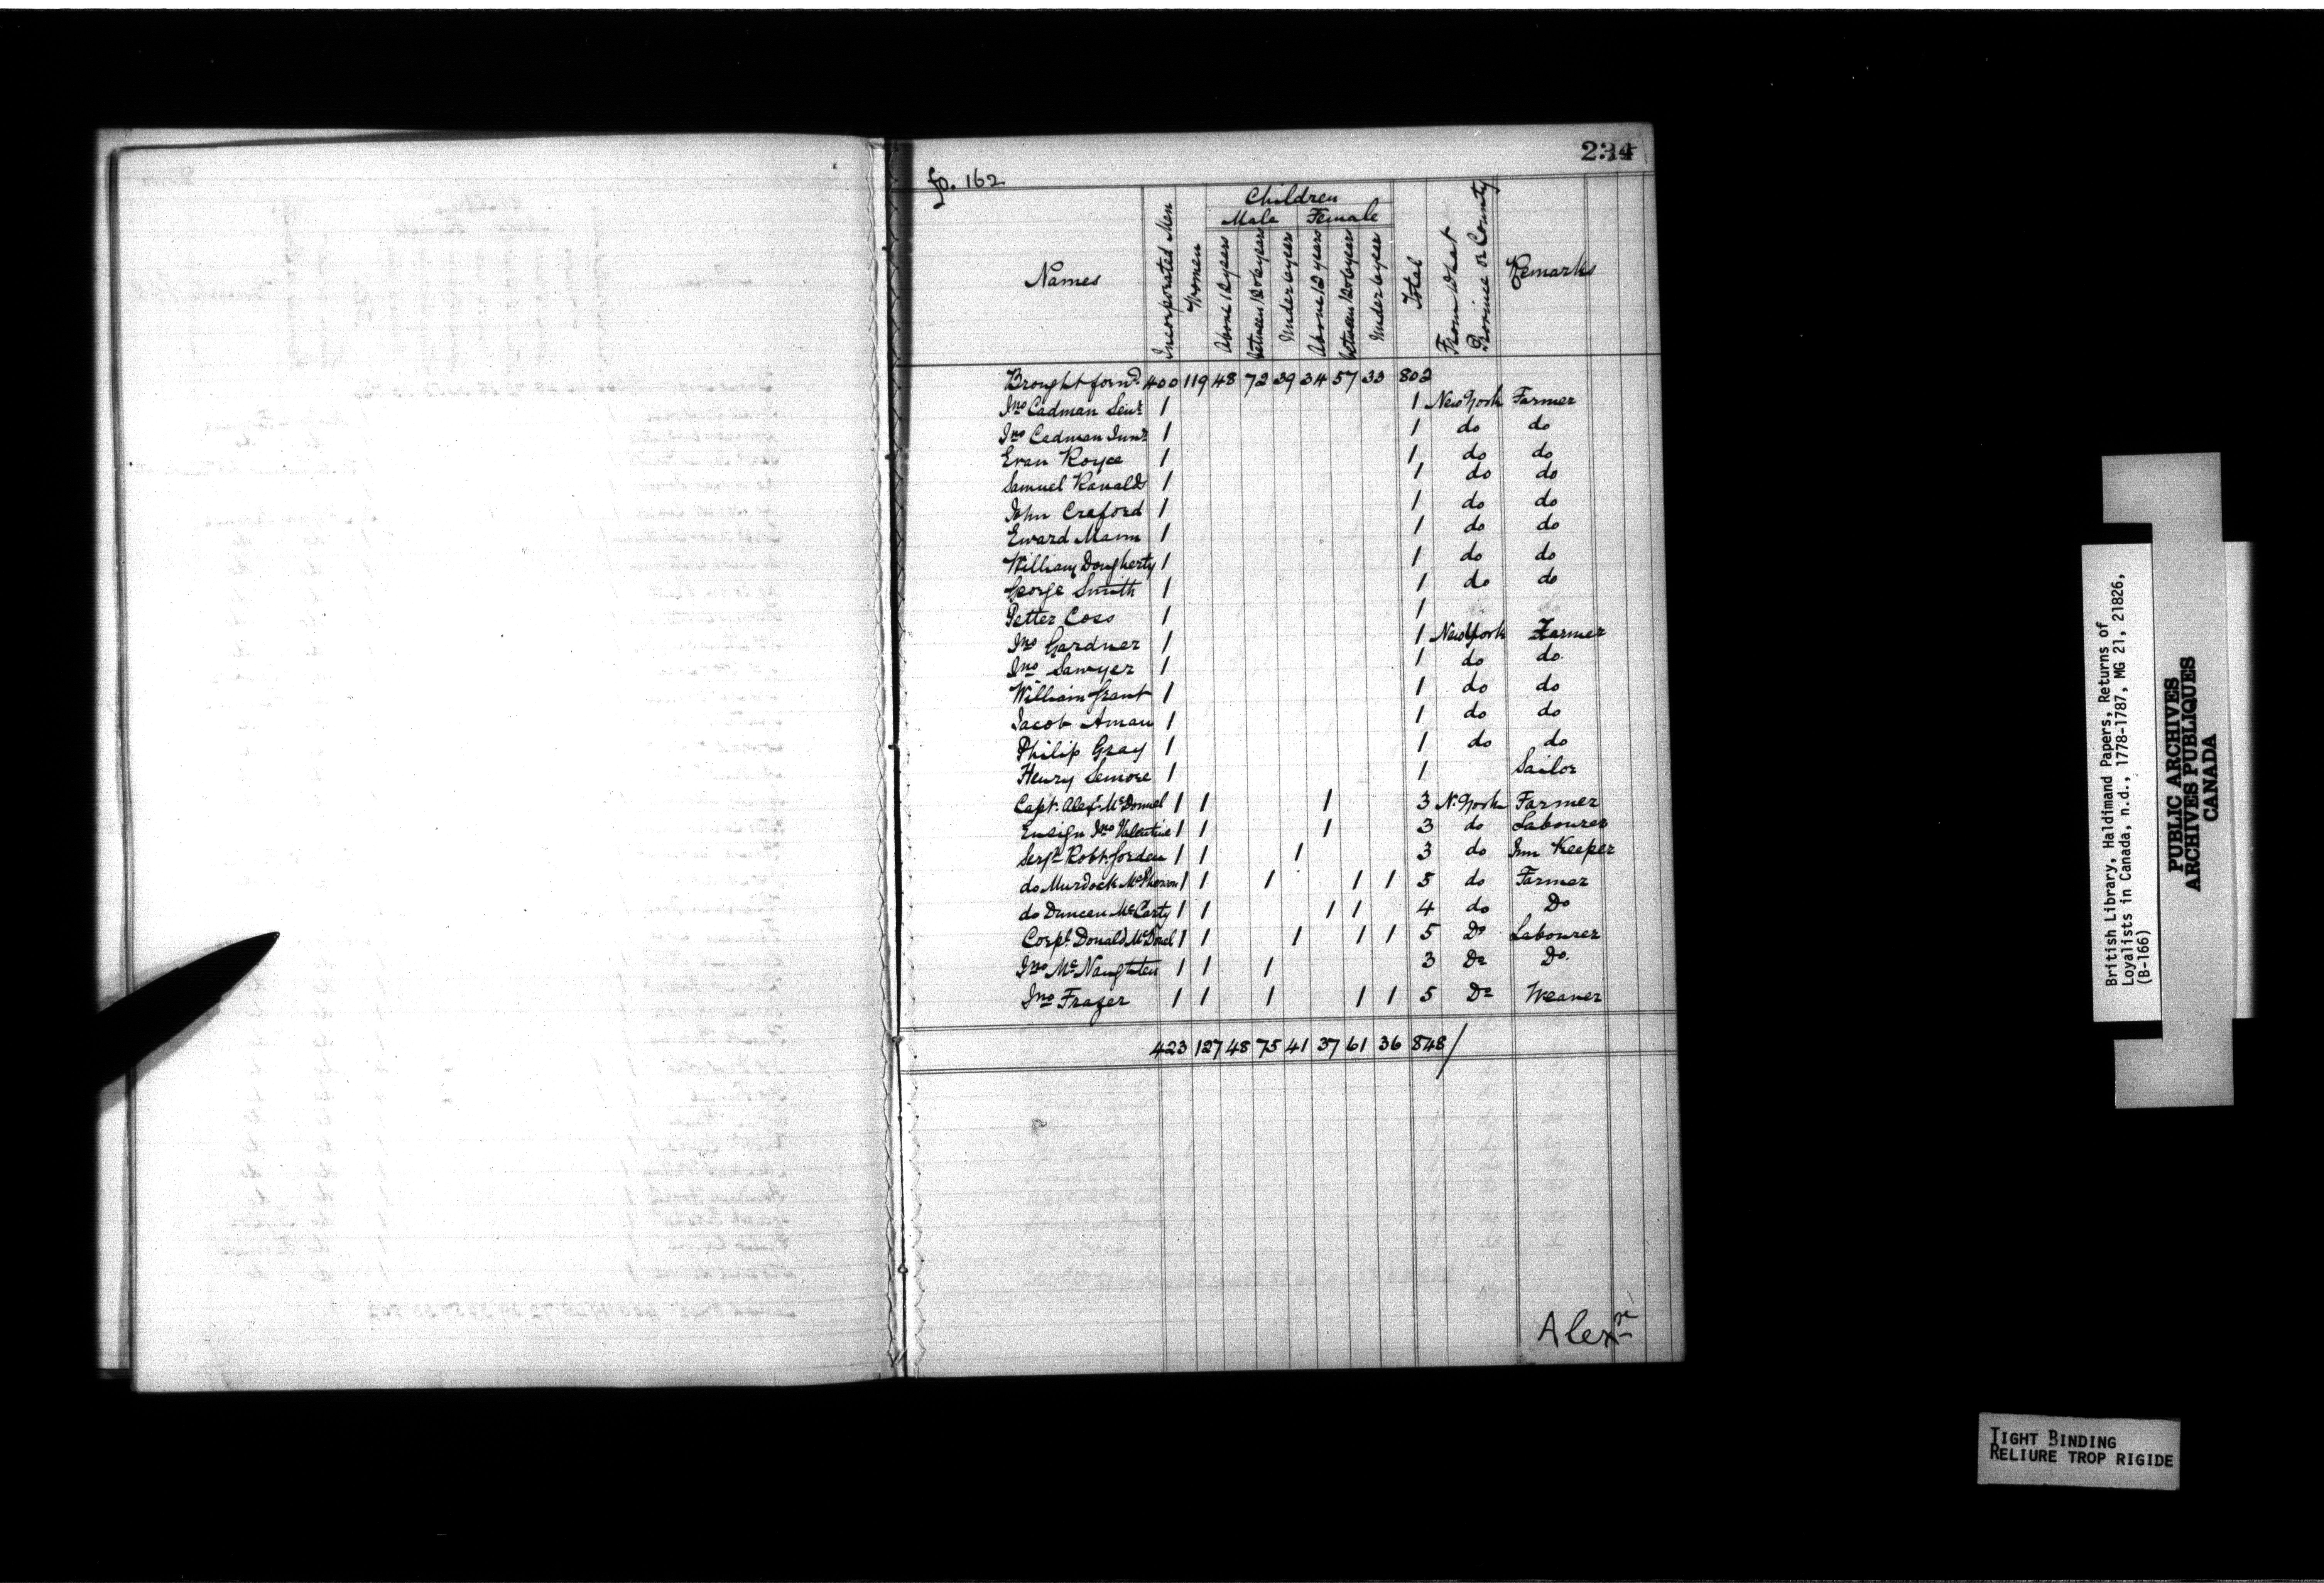 234
fo. 162
Children
Male Female
Names Incorporated Men Women Above 12 years between 12 & 6 years Under 6 years Above 12 years between 12 & 6 years Under 6 years Total From What Province or County Remarks
Brought forwd. 400 119 48 72 39 34 57 33 802
Jno Cadman Senr 1 1 New York Farmer
Jno Cadman Junr 1 1 do do
Evan Royce 1 1 do do
Samuel Ranalds 1 1 do do
John Craford 1 1 do do
Eward Mann 1 1 do do
William Dougherty 1 1 do do
George Smith 1 1 do do
Petter Coss 1 1
Jno Gardner 1 1 New York Farmer
Jno Sawyer 1 1 do do
William Grant 1 1 do do
Jacob Aman 1 1 do do
Philip Gray 1 1 do do
Henry Semore 1 1 Sailor
Capt. Alexr McDonnel 1 1 1 3 N. York Farmer
Ensign Jno Valentine 1 1 1 3 do Labourer
Serjt Robt. Gorden 1 1 1 3 do Inn Keeper
do Murdock McPherson 1 1 1 1 1 5 do Farmer
do Duncan McCarty 1 1 1 1 4 do Do
Corpl. Donald McDonel 1 1 1 1 1 5 Do Labourer
Jno McNaughten 1 1 1 3 Do Do.
Jno Frazer 1 1 1 1 1 5 Do Weaver
423 127 48 75 41 37 61 36 848/
Alexr
British Library, Haldimand Papers, Returns of
Loyalists in Canada, n.d., 1778-1787, MG 21, 21826,
(B-166)
PUBLIC ARCHIVES
ARCHIVES PUBLIQUES
CANADA
TIGHT BINDING
RELIURE TROP RIGIDE